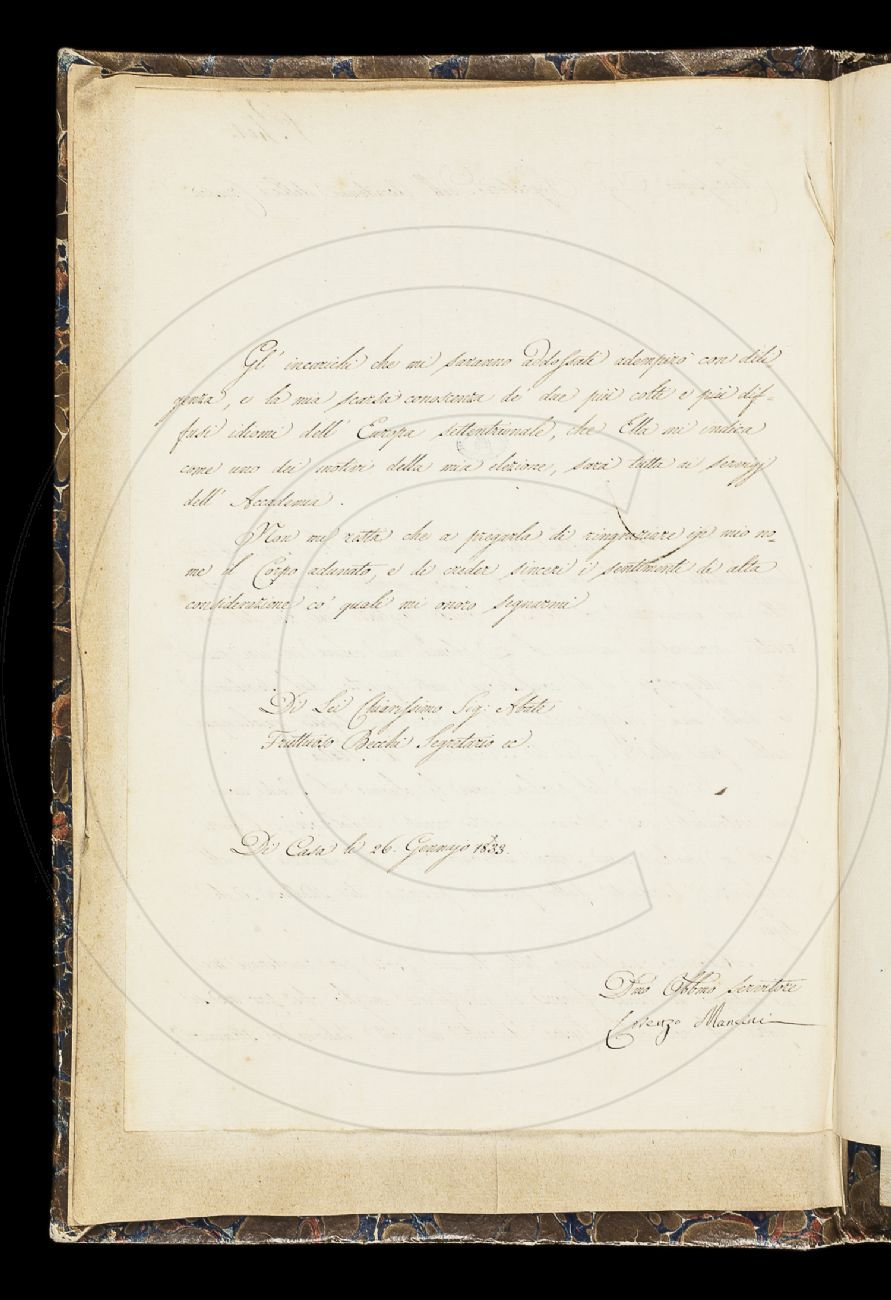 Gl' incarichi che mi saranno addossati adempirò con dili-
genza, e la mia scarsa conoscenza de' due più colti e più dif-
fusi idiomi dell' Europa settentrionale, che Ella mi indica
come uno dei motivi della mia elezione, sarà tutta ai servigj
dell' Accademia.
Non mi resta che a pregarla di ringraziare in mio no-
me il Corpo adunato, e di creder sinceri i sentimenti di alta
considerazione co' quali mi onoro segnarmi
Di Lei Chiarissimo Sig: Abate
Fruttuoso Becchi Segretario ec.
Di Casa le 26. Gennajo 1833.
Dmo Obbmo servitore
Lorenzo Mancini